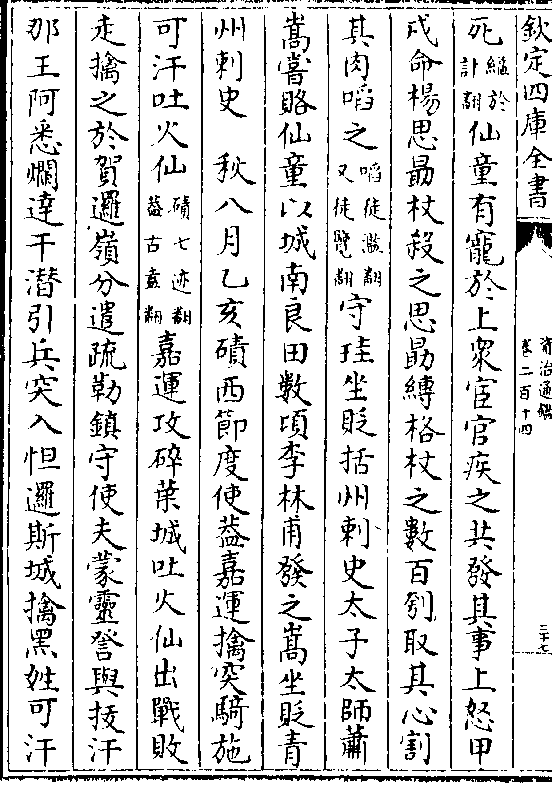 欽定四庫全書
資治通鑑
卷二百十四
三十七
死縊於計翻仙童有寵於上衆宦官疾之共發其事上怒甲
戌命楊思勗杖殺之思勗縛格杖之數百刳取其心割
其肉啗之啗徒濫翻又徒覽翻守珪坐貶括州刺史太子太師蕭
嵩嘗賂仙童以城南良田數頃李林甫發之嵩坐貶青
州刺史 秋八月乙亥磧西節度使葢嘉運擒突騎施
可汗吐火仙磧七迹翻葢古盍翻嘉運攻碎葉城吐火仙出戰敗
走擒之於賀邏嶺分遣疏勒鎮守使夫蒙靈詧與拔汗
那王阿悉爛達干潛引兵突入怛邏斯城擒黑姓可汗